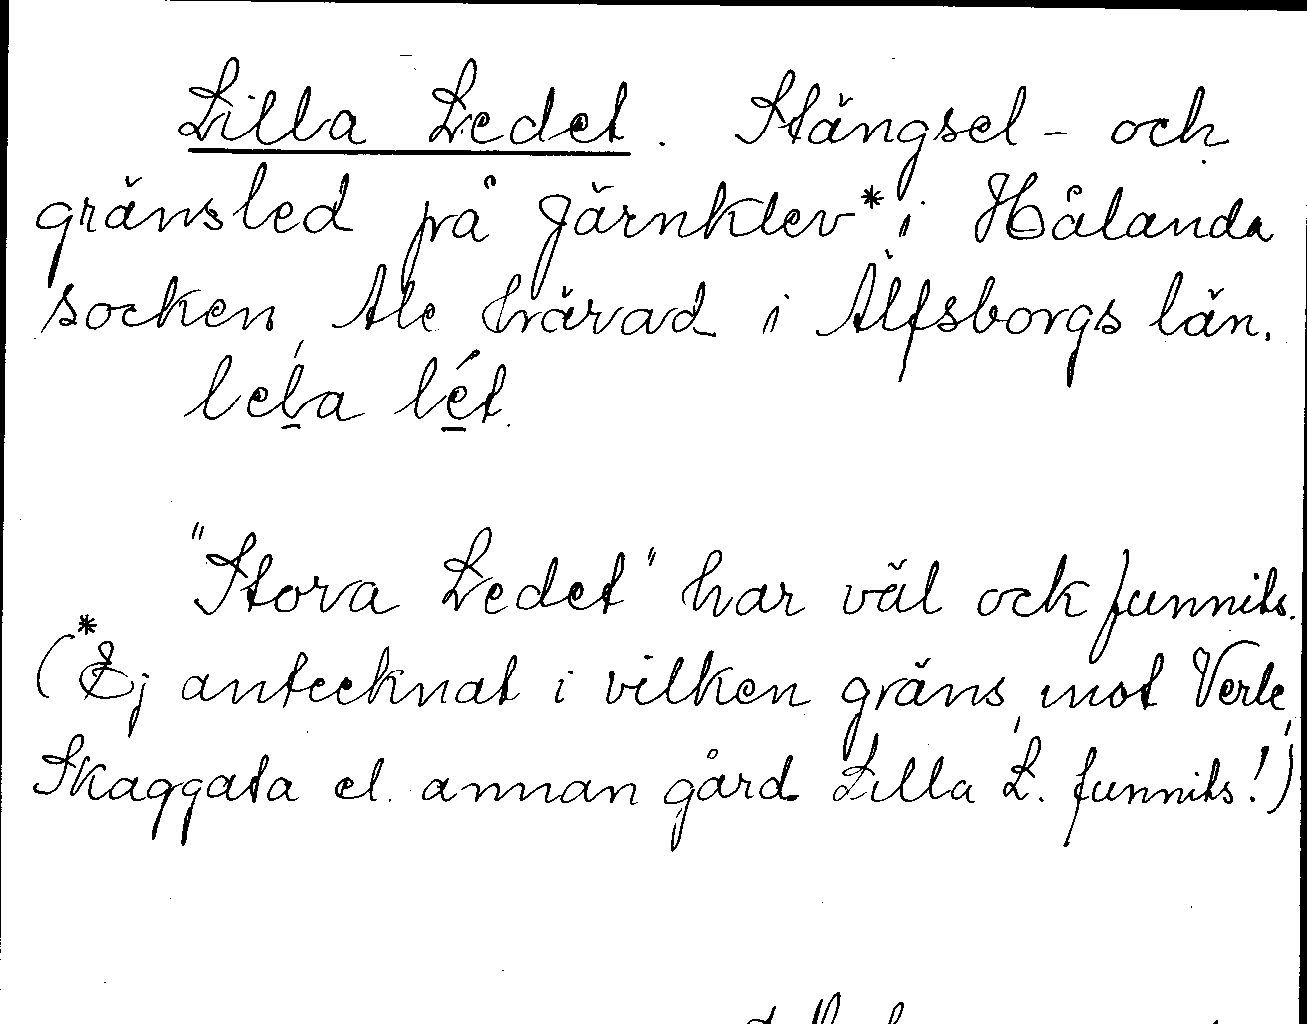 Lilla Ledet. Stängsel- och
gränsled på Järnklev* i Hålanda
socken, Ale härad i Älfsborgs län.
lela lét.
"Stora Ledet" har väl ock funnits.
(*Ej antecknat i vilken gräns, mot Verle,
Skaggata el. annan gård Lilla L. funnits!)